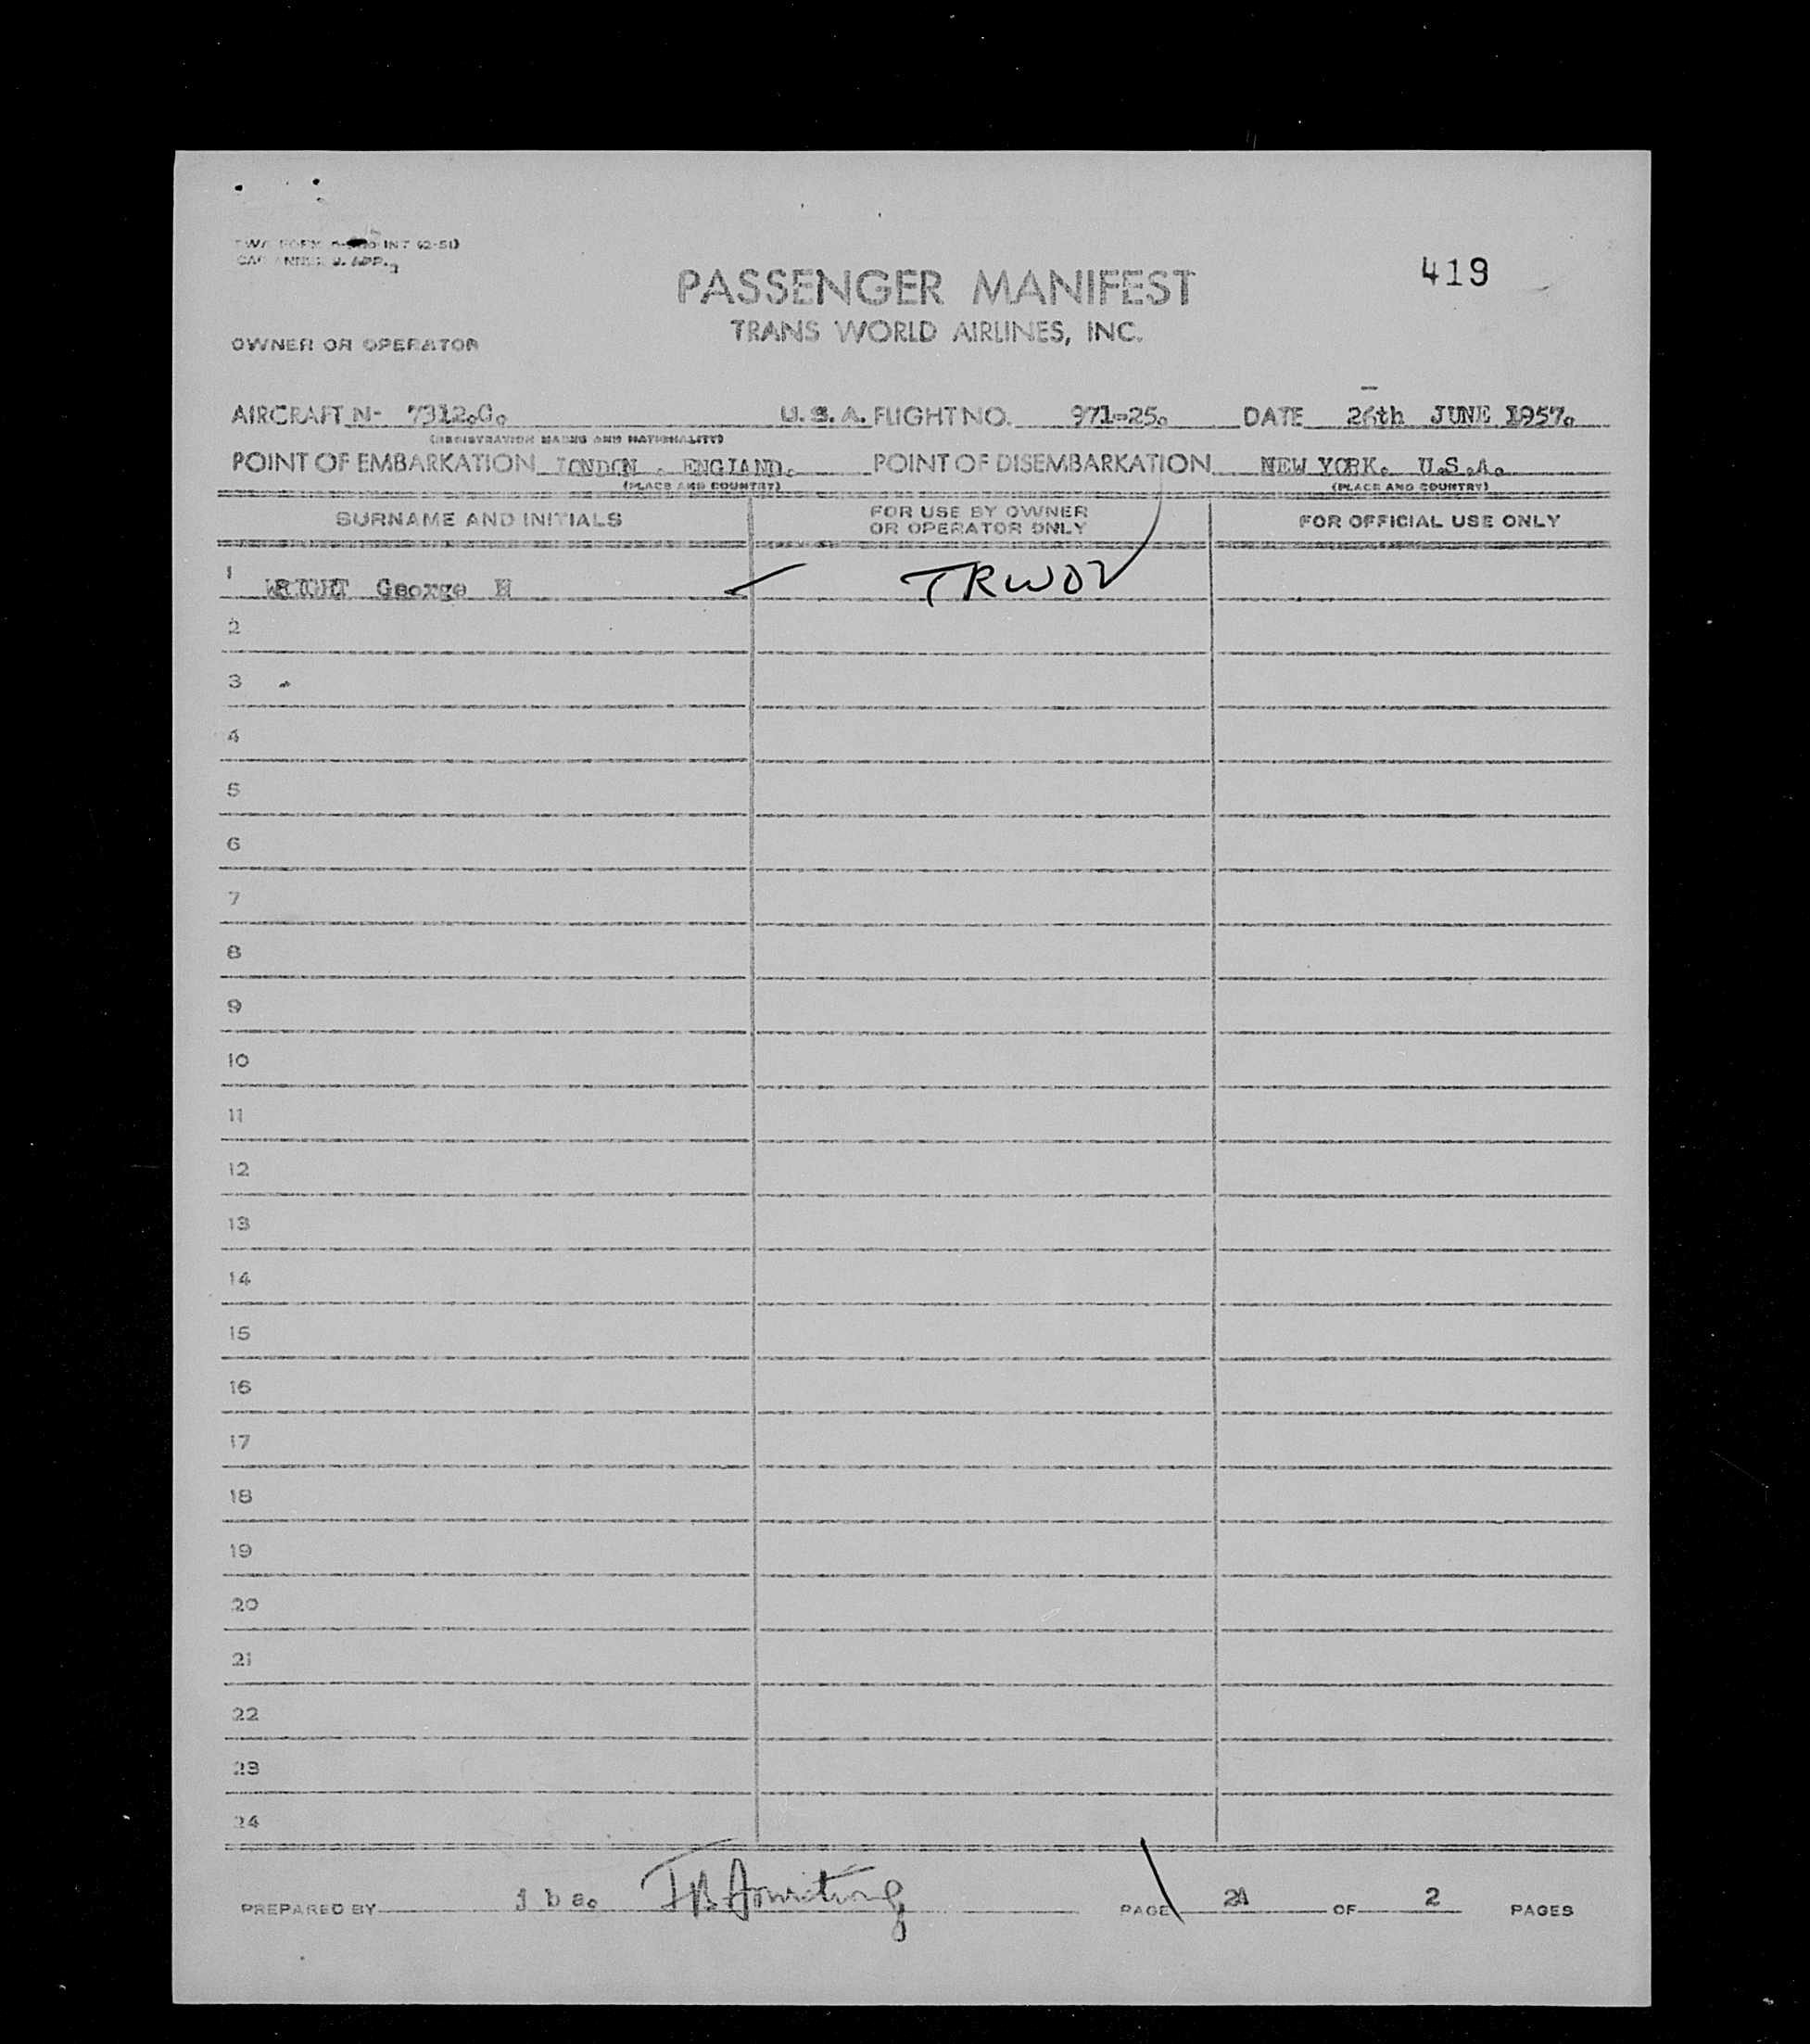 INT (2-51)
419
PASSENGER MANIFEST
TRANS WORLD AIRLINES, INC.
OWNER OR OPERATOR
AIRCRAFT N- 7312.C. U.S.A. FLIGHT NO. 971-25. DATE 26th JUNE 1957.
(REGISTRATION MARKS AND NATIONALITY)
POINT OF EMBARKATION LONDON . ENGLAND. POINT OF DISEMBARKATION NEW YORK. U.S.A.
(PLACE AND COUNTRY) (PLACE AND COUNTRY)
SURNAME AND INITIALS FOR USE BY OWNER OR OPERATOR ONLY FOR OFFICIAL USE ONLY
1 WRIGHT George H TRWOV
2
3
4
5
6
7
8
9
10
11
12
13
14
15
16
17
18
19
20
21
22
23
24
PREPARED BY j b a. J B Armstrong PAGE 2A OF 2 PAGES